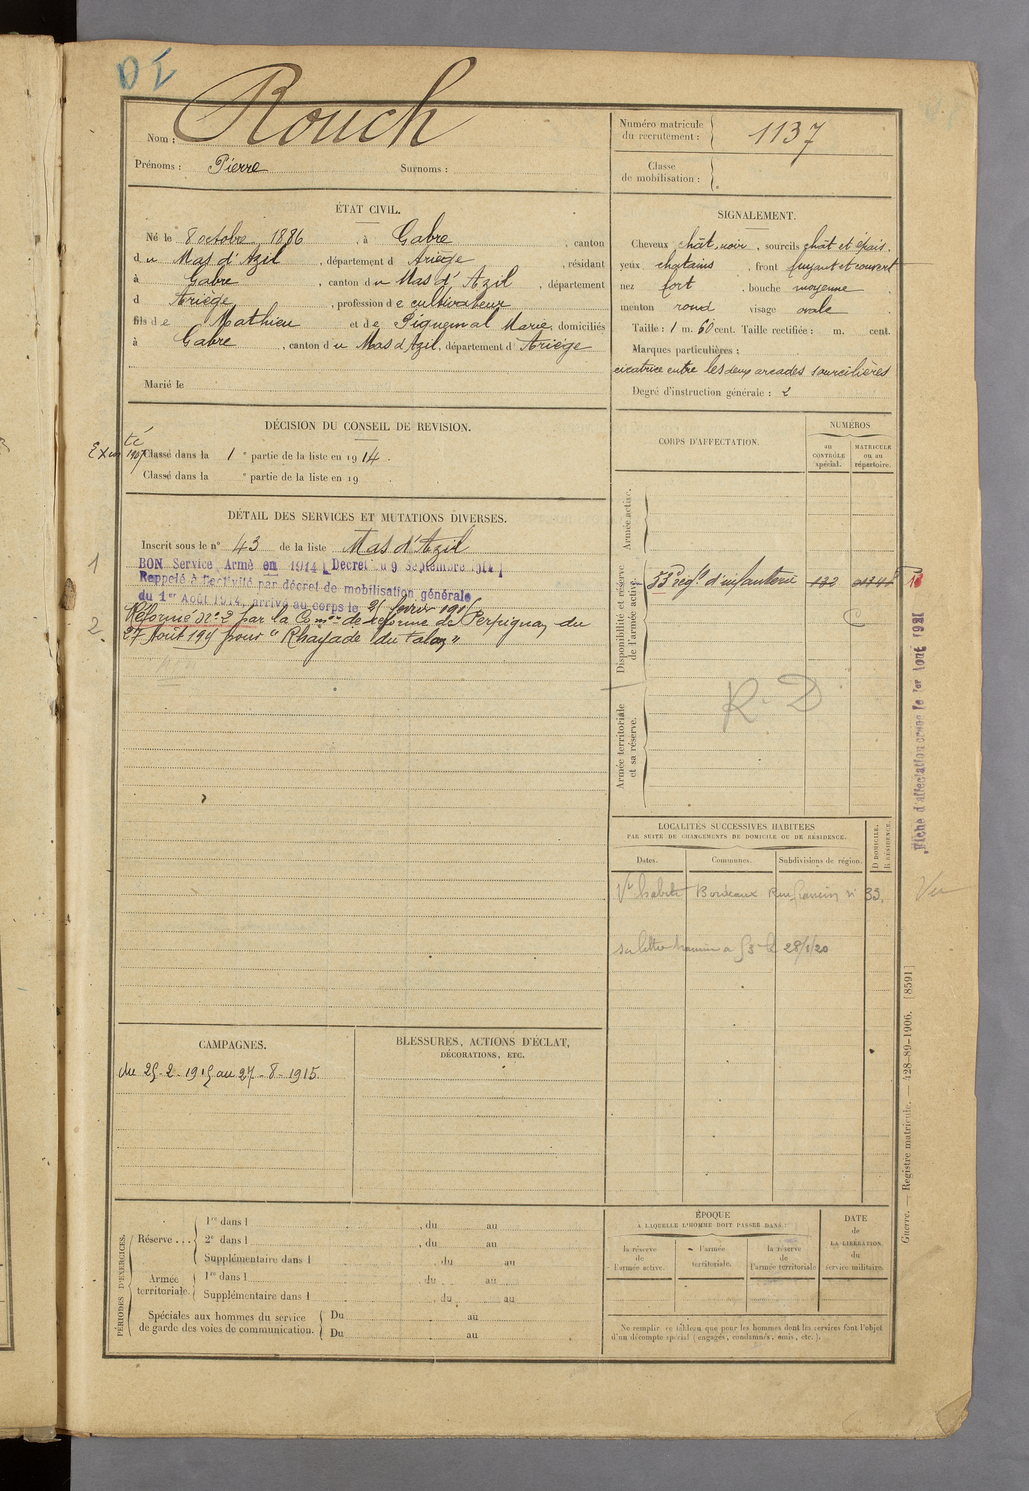 DE
Nom : Rouch
Prénoms : Pierre Surnoms :
Numéro matricule du recrutement : 1137
Classe de mobilisation :
ÉTAT CIVIL.
Né le 8 octobre 1886, à Gabre, canton
du Mas d'Azil, département d Ariège, résidant
à Gabre, canton du Mas d'Azil, département
d Ariège, profession de cultivateur
fils de Mathieu et de Piquemal Marie, domiciliés
à Gabre, canton du Mas d'Azil, département d'Ariège
Marié le
SIGNALEMENT.
Cheveux chât. noir, sourcils chât et épais.
yeux chatains, front fuyant et couvert
nez fort, bouche moyenne
menton rond visage ovale
Taille : 1 m. 60 cent. Taille rectifiée : m. cent.
Marques particulières :
cicatrice entre les deux arcades sourcilières
Degré d'instruction générale : 2
DÉCISION DU CONSEIL DE REVISION.
Exempté 1907
Classé dans la 1e partie de la liste en 1914.
Classé dans la e partie de la liste en 19
CORPS D'AFFECTATION.
NUMÉROS
au CONTRÔLE spécial.
MATRICULE ou au répertoire.
DÉTAIL DES SERVICES ET MUTATIONS DIVERSES.
Inscrit sous le n° 43 de la liste Mas d'Azil
1
BON Service Armé en 1914 [Décret du 9 Septembre 1914]
Rappelé à l'activité par décret de mobilisation générale
du 1er Août 1914, arrivé au corps le 25 février 1915
2.
Réformé n° 2 par la Comon de réforme de Perpignan du
27 Août 1915 pour
Armée active.
Disponibilité et réserve de l'armée active.
53e régt. d'infanterie
Armée territoriale et sa réserve.
R. D
Fiche d'affectation le 1er Août 1921
LOCALITÉS SUCCESSIVES HABITÉES
PAR SUITE DE CHANGEMENTS DE DOMICILE OU DE RÉSIDENCE.
Dates. Communes. Subdivisions de région. D DOMICILE. R RÉSIDENCE.
habite Bordeaux Rue n° 33.
28/1/20
Vu
CAMPAGNES.
du 25-2-1915 au 27-8-1915.
BLESSURES, ACTIONS D'ÉCLAT,
DÉCORATIONS, ETC.
PÉRIODES D'EXERCICES.
Réserve ...
1re dans l , du au
2e dans l , du au
Supplémentaire dans l , du au
Armée territoriale.
1re dans l , du au
Supplémentaire dans l , du au
Spéciales aux hommes du service de garde des voies de communication.
Du au
Du au
ÉPOQUE
A LAQUELLE L'HOMME DOIT PASSER DANS :
la réserve de l'armée active.
l'armée territoriale.
la réserve de l'armée territoriale
DATE de LA LIBÉRATION du service militaire.
Ne remplir ce tableau que pour les hommes dont les services font l'objet
d'un décompte spécial (engagés, condamnés, omis, etc.).
Guerre. — Registre matricule. — 428-89-1906. [8591]